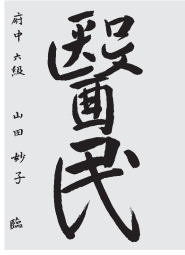 醫民
府中 六級 山田 妙子 臨